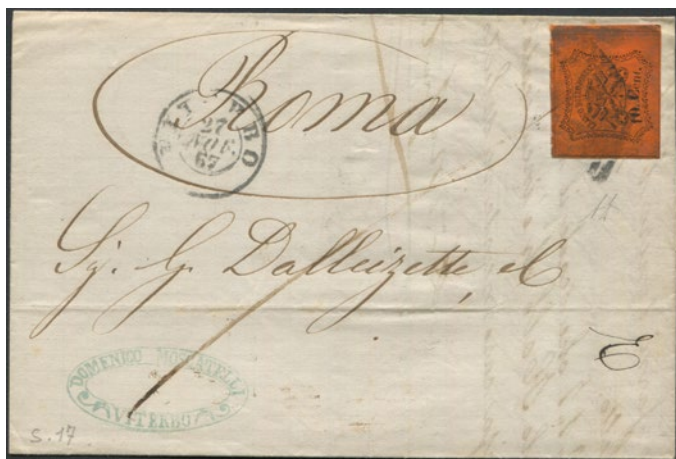 Roma
VITERBO
27
NOV.
67
10 Cent.
Sig. G. Dalleizette, e C
DOMENICO MOSCATELLI
VITERBO
S. 17